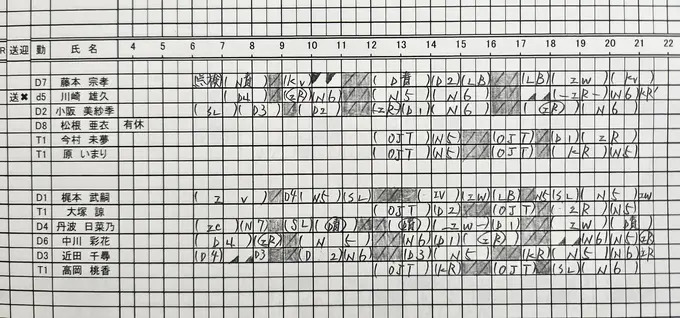 R 送迎 勤 氏 名 4 5 6 7 8 9 10 11 12 13 14 15 16 17 18 19 20 21 22
D7 藤本 宗孝 (D責)(D2)(LB) (LB)(ZW)(KV)
送✖ d5 川崎 雄久 (D4)(ZR)(N6) (N5)(N6) (-ZR-)(N6)KR
D2 小阪 美紗季 (SL)(D3)(D2) (-ZR-)(D1) (ZR)(N6)
D8 松根 亜衣 有休
T1 今村 未夢 (OJT)(N5) (OJT)(D1)(ZR)
T1 原 いまり (OJT)(N5) (OJT)(KR)(N5)
D1 梶本 武嗣 (Z V) D4(N5)(SL) (ZV)(ZW)(LB) N5(SL)(N5)ZW
T1 大塚 諒 (OJT)(D2) (OJT)(ZR)(N5)
D4 丹波 日菜乃 (ZC)(N7) (SL)(D責) (D責)(-ZW-)(D1) (ZW)(D責)
D6 中川 彩花 (D4)(ZR) (N5)(N6)(D1)(ZR) (N6)(N5)ZR
D3 近田 千尋 (D4) D3 (D2)(N6) (D3)(N5) (KR)(N5)(N6)ZR
T1 高岡 桃香 (OJT)(KR) (OJT)(SL)(N6)